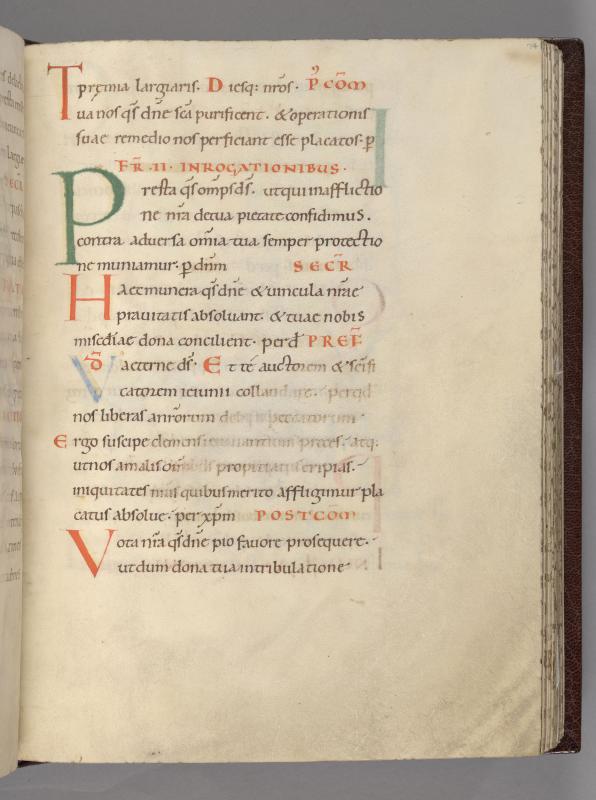 pręmia largiaris. Diesq: nr̄os. P̄ COM̄
Tua nos qs̄ dn̄e sc̄a purificent. & operationis
suae remedio nos perficiant esse placatos. p̄
FR̄. II. IN ROGATIONIBUS.
Presta qs̄ omp̄s ds̄. ut qui in afflictio
ne nr̄a de tua pietate confidimus.
contra adversa om̄ia tua semper protectio
ne muniamur. p̄ dn̄m SECR̄
Haec munera qs̄ dn̄e & vincula nr̄ae
pravitatis absoluant. & tuae nobis
misedīae dona concilient. per d̄ PREF̄
VD̄ aeterne ds̄. Et te auctorem & sc̄ifi
catorem ieiunii collaudare. per qd̄
nos liberas a nr̄orum debitis peccatorum
Ergo suscipe clemens ieiunantium preces. atq.
ut nos a malis om̄ibus propitiatus eripias.
iniquitates nr̄as quibus merito affligimur pla
catus absolve. per xp̄m POSTCOM̄
Vota nr̄a qs̄ dn̄e pio favore prosequere.
ut dum dona tua in tribulatione